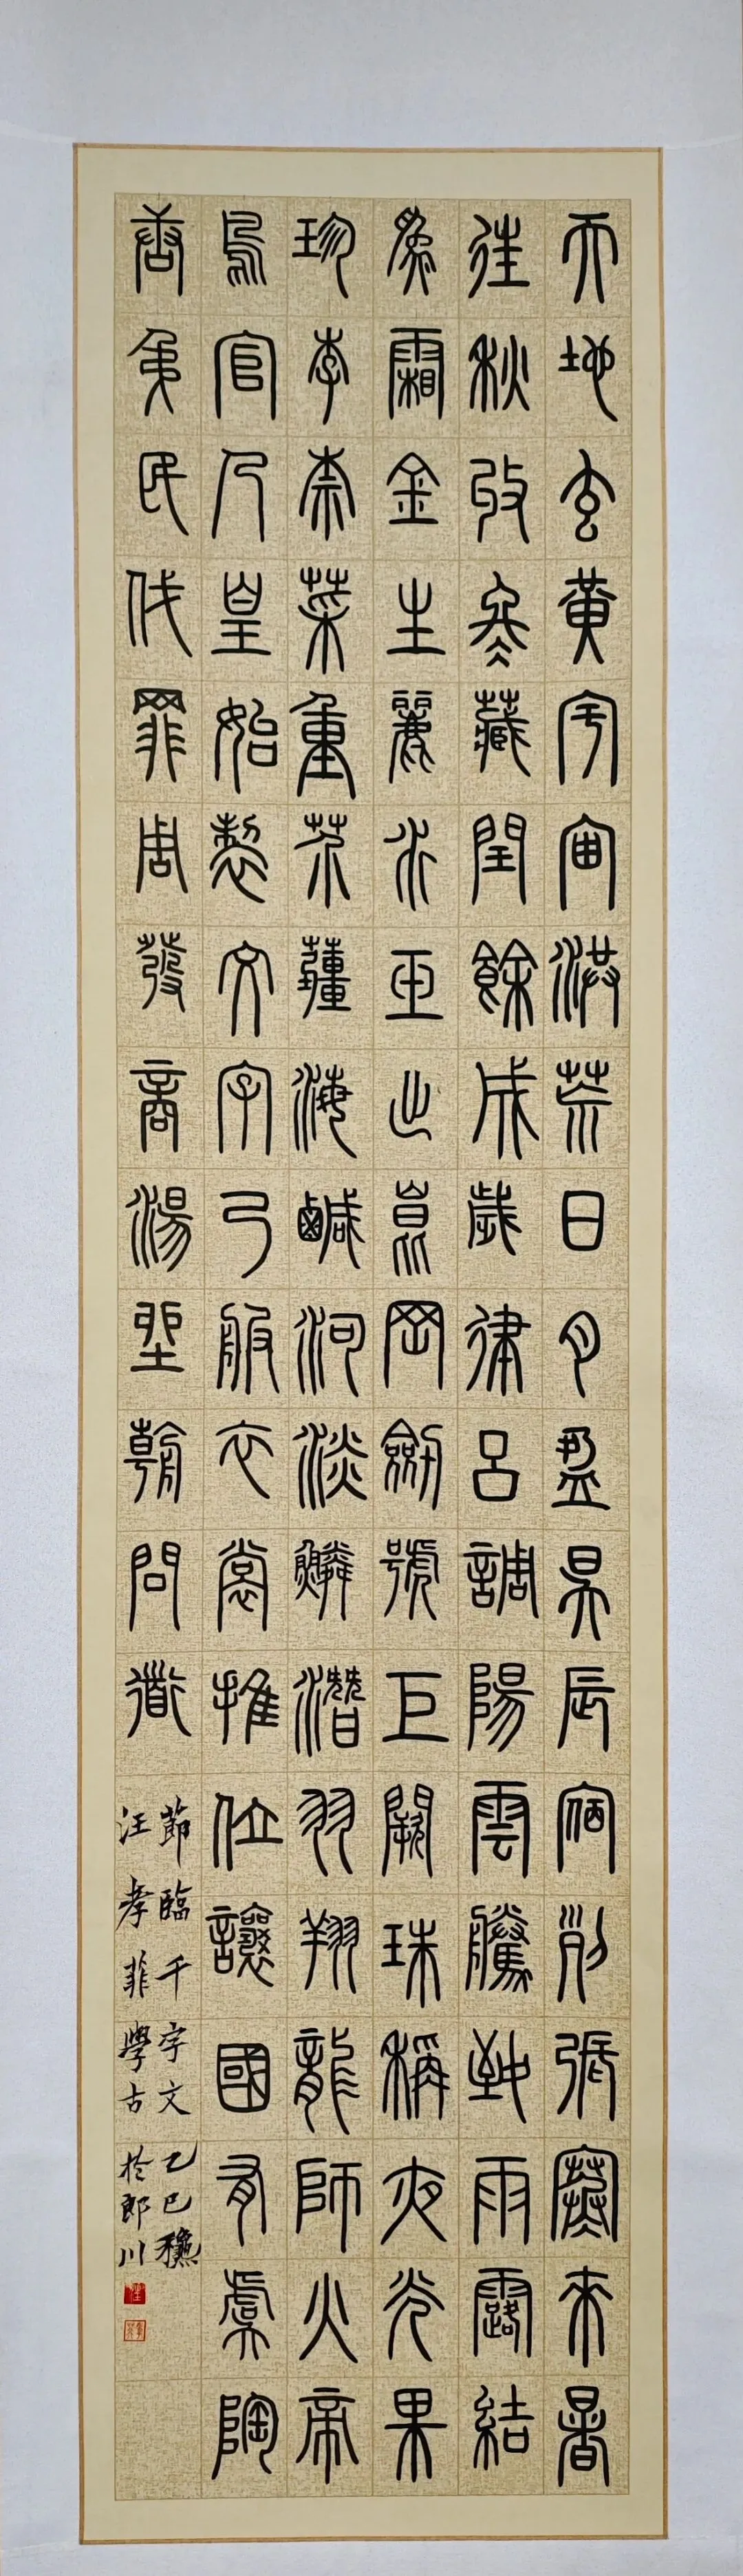 天地玄黃宇宙洪荒日月盈昃辰宿列張寒來暑
往秋收冬藏閏餘成歲律呂調陽雲騰致雨露結
為霜金生麗水玉出崑岡劍號巨闕珠稱夜光果
珍李柰菜重芥薑海鹹河淡鱗潛羽翔龍師火帝
鳥官人皇始製文字乃服衣裳推位讓國有虞陶
唐弔民伐罪周發商湯坐朝問道
節臨千字文乙巳龝
汪孝菲學古於郎川